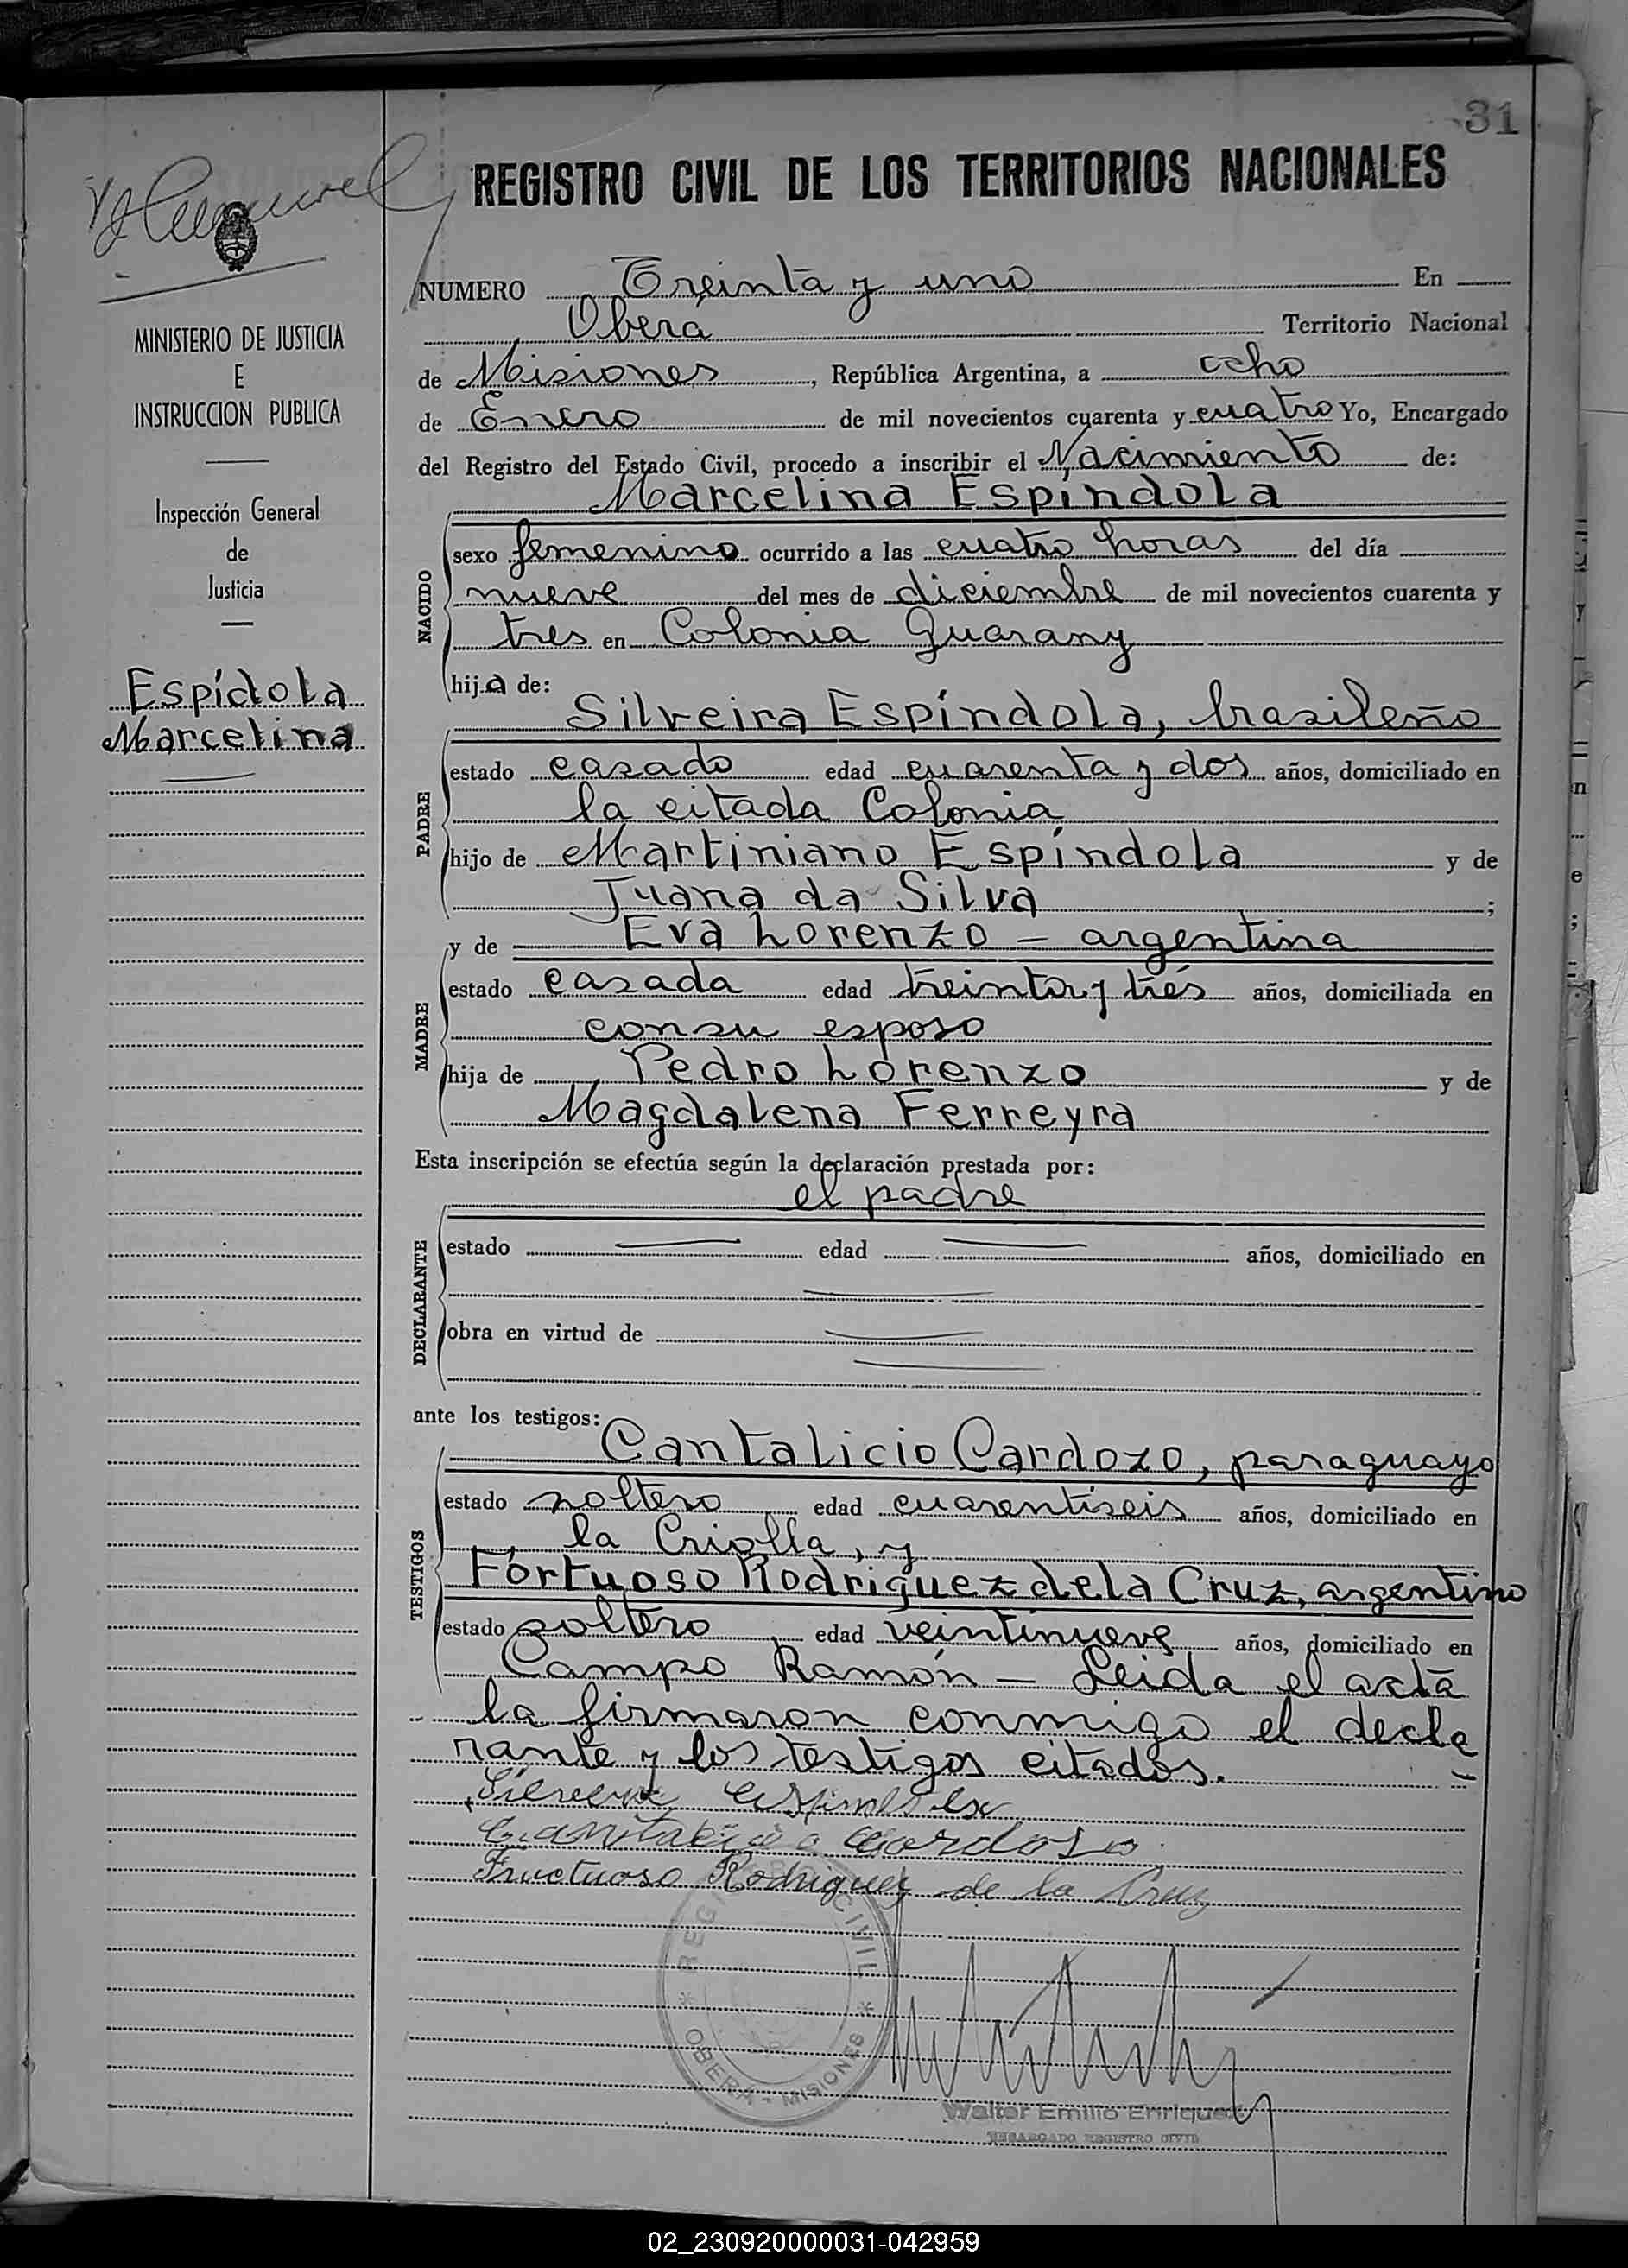 31
REGISTRO CIVIL DE LOS TERRITORIOS NACIONALES
NUMERO Treinta y uno En
Oberá Territorio Nacional
de Misiones, República Argentina, a ocho
de Enero de mil novecientos cuarenta y cuatro Yo, Encargado
del Registro del Estado Civil, procedo a inscribir el Nacimiento de:
Marcelina Espíndola
NACIDO
sexo femenino ocurrido a las cuatro horas del día
nueve del mes de diciembre de mil novecientos cuarenta y
tres en Colonia Guarany
hija de:
Silveira Espíndola, brasileño
PADRE
estado casado edad cuarenta y dos años, domiciliado en
la citada Colonia
hijo de Martiniano Espíndola y de
Juana da Silva ;
y de Eva Lorenzo - argentina
MADRE
estado casada edad treinta y trés años, domiciliada en
con su esposo
hija de Pedro Lorenzo y de
Magdalena Ferreyra
Esta inscripción se efectúa según la declaración prestada por:
el padre
DECLARANTE
estado edad años, domiciliado en
obra en virtud de
ante los testigos:
Cantalicio Cardozo, paraguayo
TESTIGOS
estado soltero edad cuarentiseis años, domiciliado en
la Criolla, y
Fortuoso Rodriguez de la Cruz, argentino
estado soltero edad veintinueve años, domiciliado en
Campo Ramón - Leida el acta
la firmaron conmigo el decla
rante y los testigos citados.
Cantalicio Cardoso
Fructuoso Rodriguez de la Cruz
REGISTRO CIVIL
* OBERA - MISIONES *
Walter Emilio Enriquez
ENCARGADO REGISTRO CIVIL
MINISTERIO DE JUSTICIA
E
INSTRUCCION PUBLICA
Inspección General
de
Justicia
Espídola
Marcelina
02_230920000031-042959